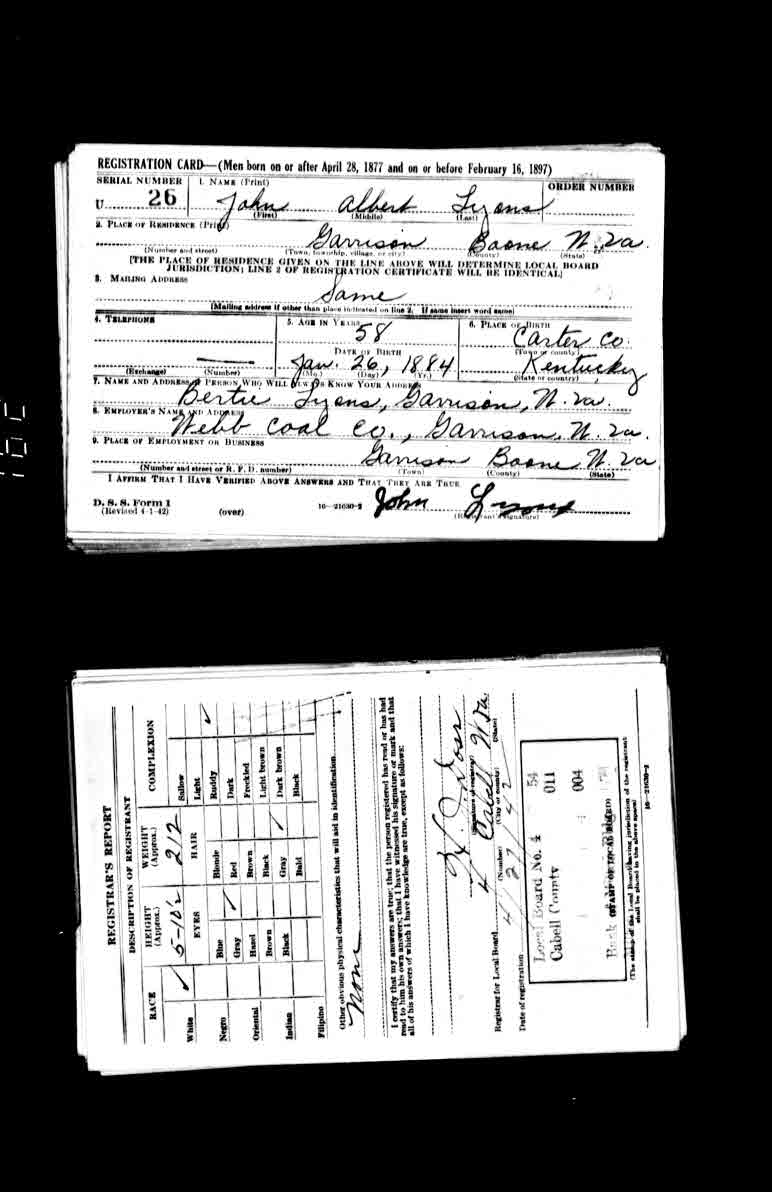 REGISTRATION CARD—(Men born on or after April 28, 1877 and on or before February 16, 1897)
SERIAL NUMBER 1. NAME (Print) ORDER NUMBER
U 26 John Albert Lyons
(First) (Middle) (Last)
2. PLACE OF RESIDENCE (Print)
Garrison Boone W. Va.
(Number and street) (Town, township, village, or city) (County) (State)
[THE PLACE OF RESIDENCE GIVEN ON THE LINE ABOVE WILL DETERMINE LOCAL BOARD
JURISDICTION; LINE 2 OF REGISTRATION CERTIFICATE WILL BE IDENTICAL]
3. MAILING ADDRESS
Same
[Mailing address if other than place indicated on line 2. If same insert word same]
4. TELEPHONE 5. AGE IN YEARS 6. PLACE OF BIRTH
58 Carter Co.
DATE OF BIRTH (Town or county)
Jan. 26, 1884 Kentucky
(Exchange) (Number) (Mo.) (Day) (Yr.) (State or country)
7. NAME AND ADDRESS OF PERSON WHO WILL ALWAYS KNOW YOUR ADDRESS
Bertie Lyons, Garrison, W. Va.
8. EMPLOYER'S NAME AND ADDRESS
Webb Coal Co., Garrison, W. Va.
9. PLACE OF EMPLOYMENT OR BUSINESS
Garrison Boone W. Va
(Number and street or R. F. D. number) (Town) (County) (State)
I AFFIRM THAT I HAVE VERIFIED ABOVE ANSWERS AND THAT THEY ARE TRUE.
D. S. S. Form 1
(Revised 4-1-42) (over) 16—21630-2 John Lyons
(Registrant's signature)
REGISTRAR'S REPORT
DESCRIPTION OF REGISTRANT
RACE HEIGHT (Approx.) WEIGHT (Approx.) COMPLEXION
White ✓ 5-10½ 212 Sallow
EYES HAIR Light ✓
Negro Blue Blonde Ruddy
Gray ✓ Red Dark
Oriental Hazel Brown Freckled
Brown Black Light brown
Indian Black Gray ✓ Dark brown
Bald Black
Filipino
Other obvious physical characteristics that will aid in identification
None
I certify that my answers are true; that the person registered has read or has had
read to him his own answers; that I have witnessed his signature or mark and that
all of his answers of which I have knowledge are true, except as follows:
(Signature of registrar)
Registrar for Local Board 4 Cabell W Va.
(Number) (City or county) (State)
Date of registration 4/27/42
Local Board No. 4 54
Cabell County 011
004
(STAMP OF LOCAL BOARD)
(The stamp of the Local Board having jurisdiction of the registrant
shall be placed in the above space)
16—21630-2